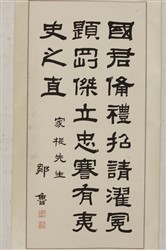 國君備禮招請濯冕
題罡傑立忠謇有夷
史之直
家振先生
鄒魯